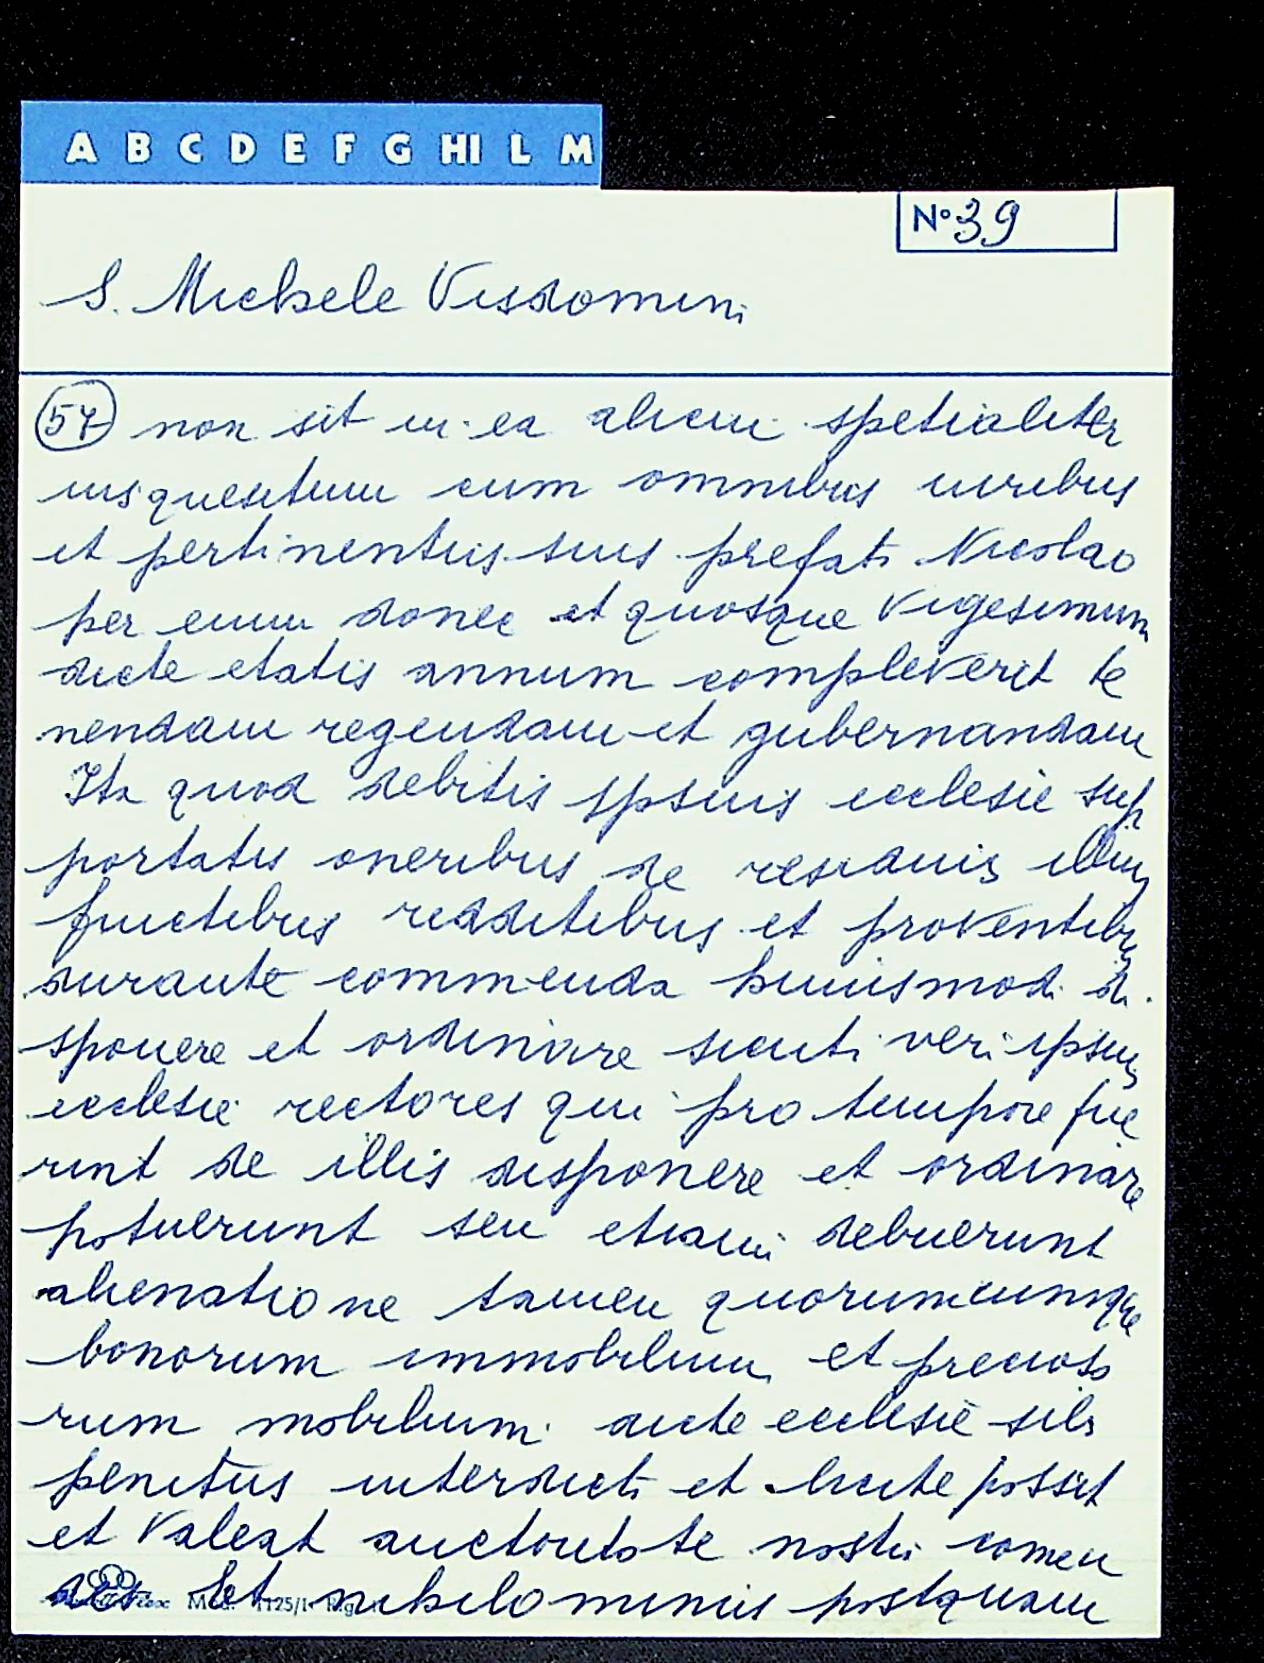 A B C D E F G HI L M
N° 39
S. Michele Visdomini
57 non sit in ea alicui spetialiter
ius quesitum cum omnibus iuribus
et pertinentiis suis prefato Nicolao
per eum donec et quosque vigesimum
dicte etatis annum compleverit te
nendam regendam et gubernandam
Ita quod debitis ipsius ecclesie sup
portatis oneribus de residuis illius
fructibus redditibus et proventibus
durante commenda huiusmodi di
sponere et ordinare sicuti veri ipsius
ecclesie rectores qui pro tempore fue
runt de illis disponere et ordinare
potuerunt seu etiam debuerunt
alienatione tamen quorumcumque
bonorum immobilium et pretioso
rum mobilium dicte ecclesie sibi
penitus interdicti et licite possit
et valeat auctoritate nostri comen
det Et nihilominus postquam
Mod. 1125/1